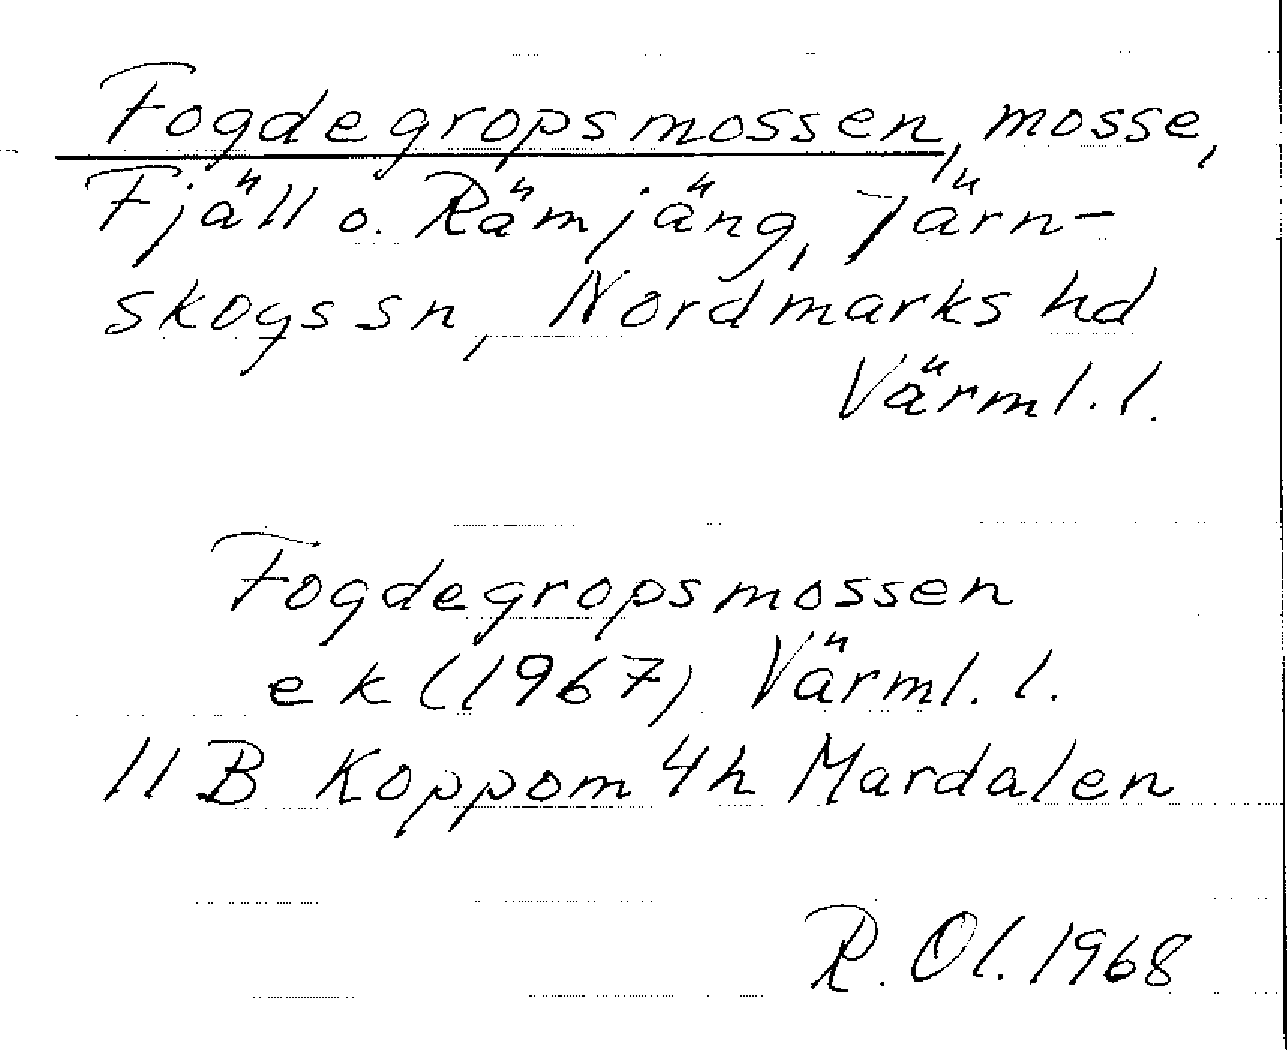 Fogdegropsmossen, mosse,
Fjäll o. Rämjäng, Järn-
skogs sn, Nordmarks hd
Värml. l.
Fogdegropsmossen
ek (1967) Värml. l.
11 B Koppom 4h Mardalen
R. Ol. 1968